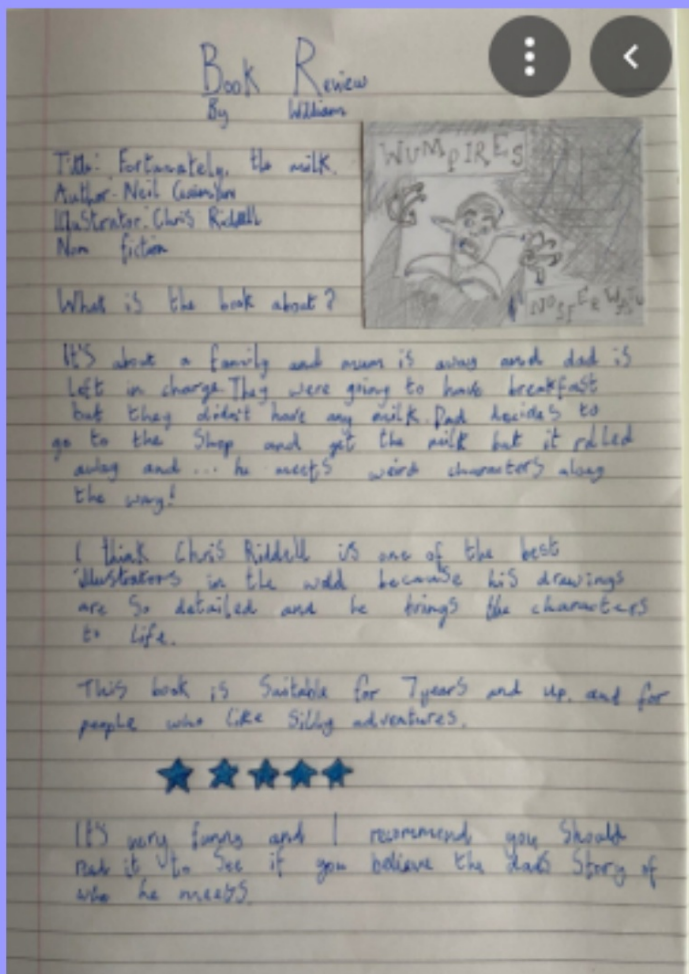 Book Review
By William
WUMPIRES
Title: Fortunately, the milk.
Author: Neil
Illustrator: Chris Riddell
Non fiction
What is the book about?
It's about a family and mum is away and dad is
left in charge. They were going to have breakfast
but they didn't have any milk. Dad decides to
go to the shop and get the milk but it
away and ... he meets weird characters along
the way!
I think Chris Riddell is one of the best
illustrators in the because his drawings
are so detailed and he brings the characters
to life.
This book is suitable for 7 years and up. and for
people who like silly adventures.
It's very funny and I recommend you should
read it to see if you believe the dads story of
who he meets.